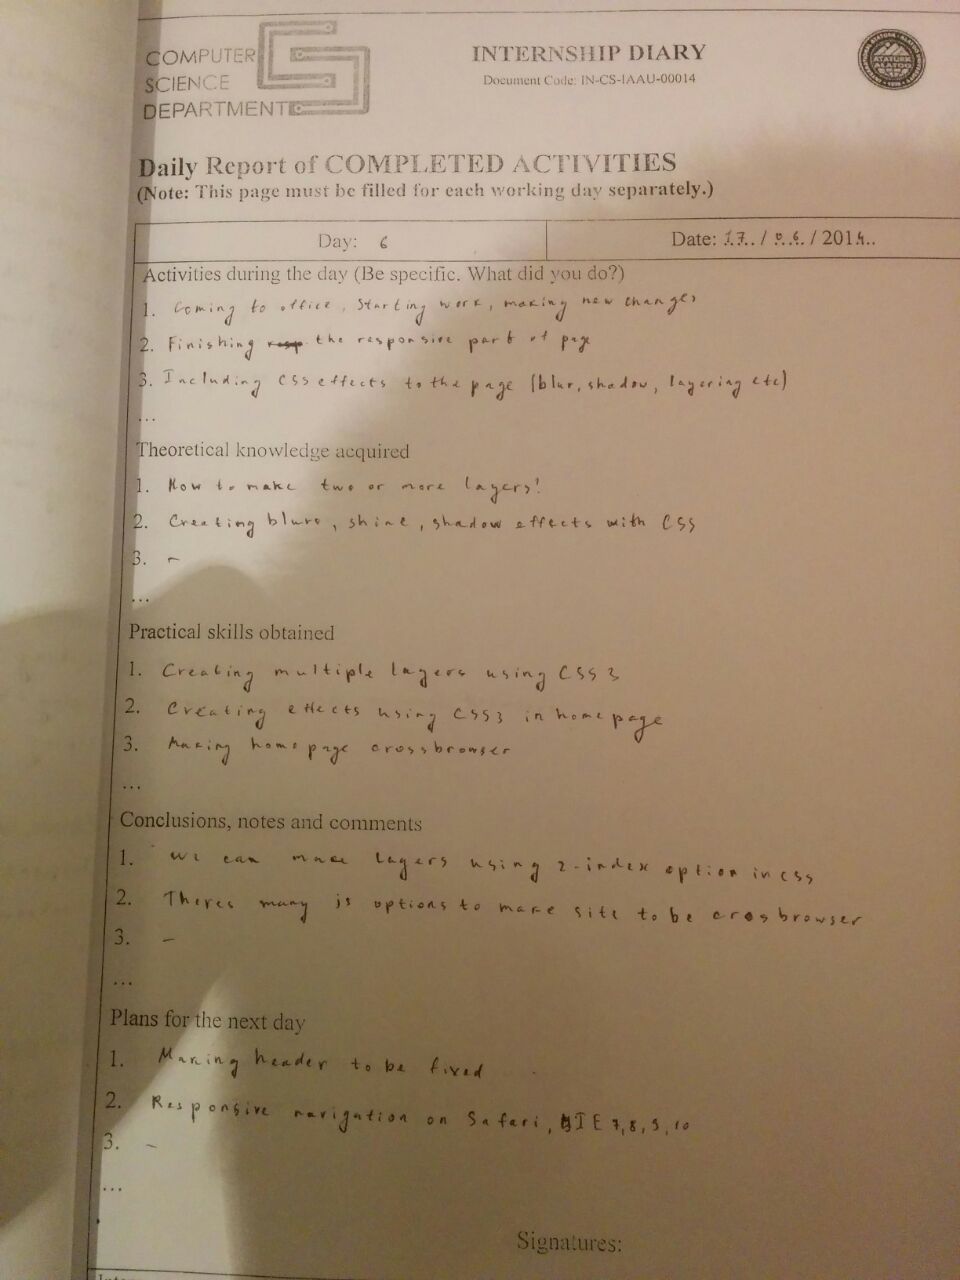 COMPUTER
SCIENCE
DEPARTMENT
INTERNSHIP DIARY
Document Code: IN-CS-IAAU-00014
ATATURK
ALATOO
Daily Report of COMPLETED ACTIVITIES
(Note: This page must be filled for each working day separately.)
Day: 6
Date: 17.. / 0.6. / 2014..
Activities during the day (Be specific. What did you do?)
1. Coming to office, Starting work, making new changes
2. Finishing the responsive part of page
3. Including CSS effects to the page (blur, shadow, layering etc)
...
Theoretical knowledge acquired
1. How to make two or more layers!
2. Creating blure, shine, shadow effects with CSS
3. –
...
Practical skills obtained
1. Creating multiple layers using CSS3
2. Creating effects using CSS3 in home page
3. Making home page crossbrowser
...
Conclusions, notes and comments
1. We can make layers using z-index option in css
2. Theres many is options to make site to be crosbrowser
3. –
...
Plans for the next day
1. Making header to be fixed
2. Responsive navigation on Safari, IE 7,8,9,10
3. –
...
Signatures: